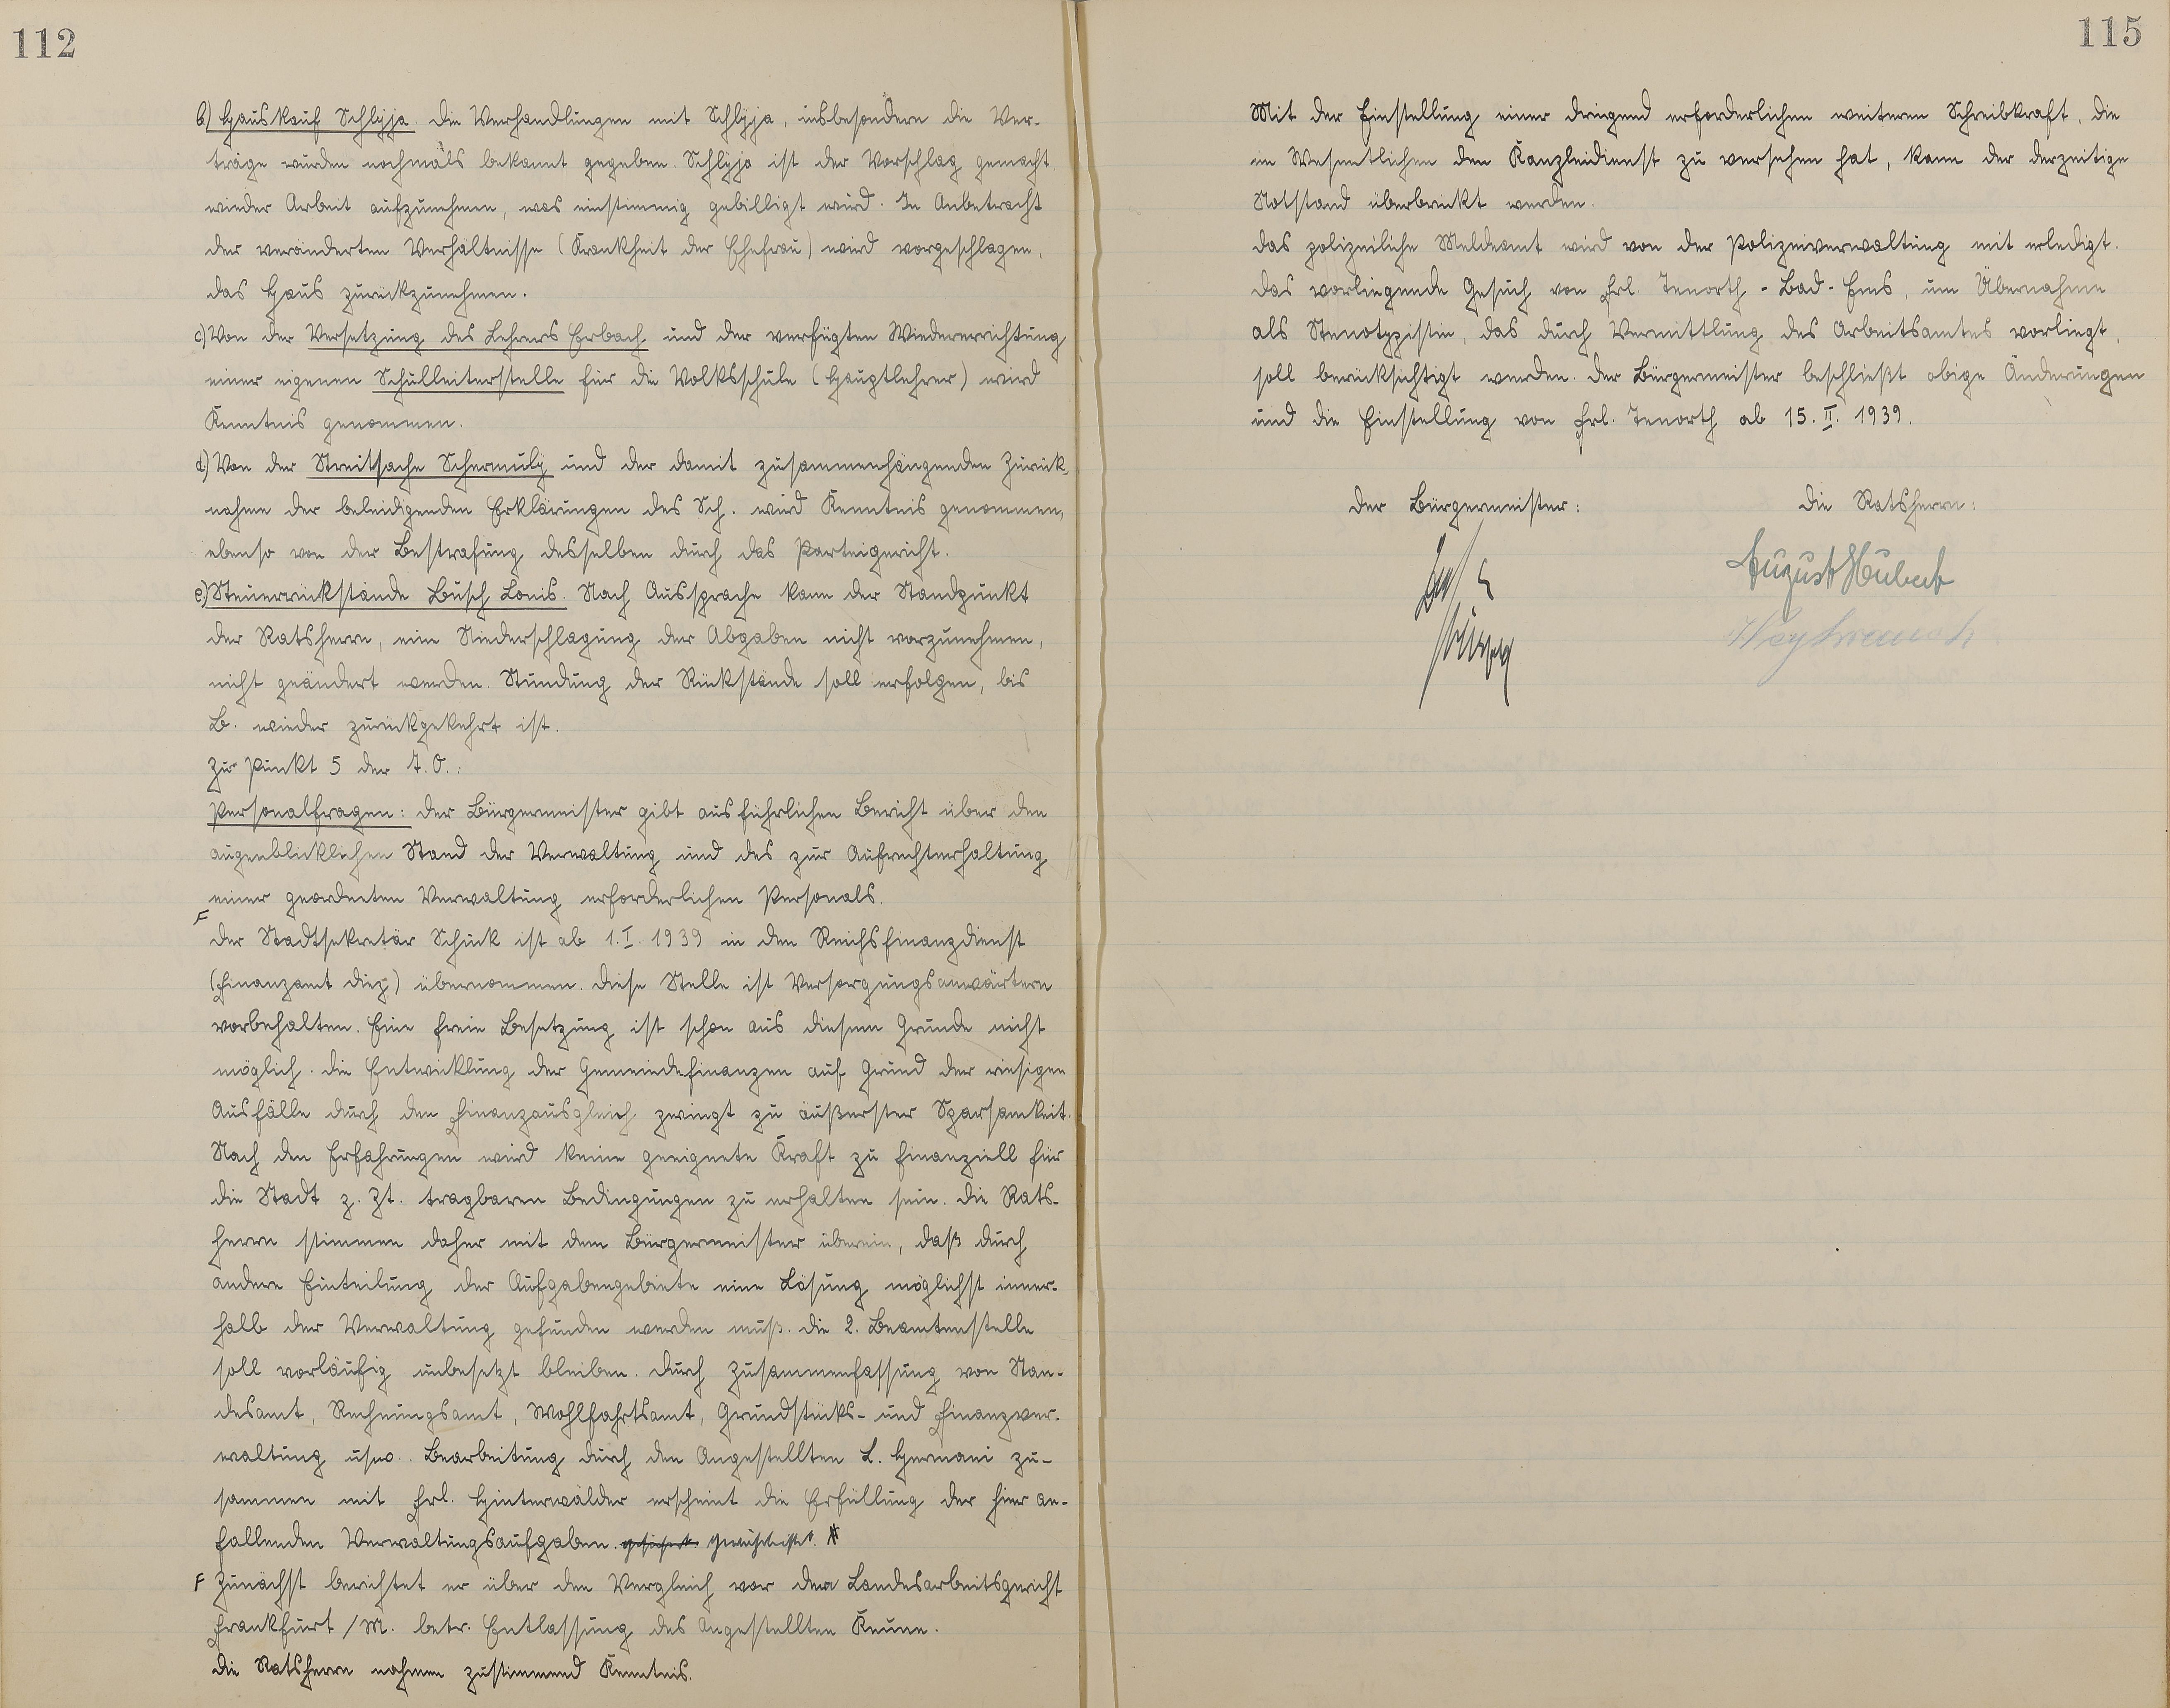 112
b) Hauskauf Schlyja. Die Verhandlungen mit Schlyja, insbesondere die Ver-
träge wurden nochmals bekannt gegeben. Schlyja ist der Vorschlag gemacht
wieder Arbeit aufzunehmen, was einstimmig gebilligt wird. In Anbetracht
der veränderten Verhältnisse (Krankheit der Ehefrau) wird vorgeschlagen,
das Haus zurückzunehmen.
c) Von der Versetzung des Lehrers Erbach und der verfügten Wiedererrichtung
einer eigenen Schulleiterstelle für die Volksschule (Hauptlehrer) wird
Kenntnis genommen.
d) Von der Streitsache Schermuly und der damit zusammenhängenden Zurück-
nahme der beleidigenden Erklärungen des Sch. wird Kenntnis genommen,
ebenso von der Bestrafung desselben durch das Parteigericht.
e) Steuerrückstände Busch Louis. Nach Aussprache kann der Standpunkt
der Ratsherrn, eine Niederschlagung der Abgaben nicht vorzunehmen,
nicht geändert werden. Stundung der Rückstände soll erfolgen, bis
B. wieder zurückgekehrt ist.
Zu Punkt 5 der T.O.:
Personalfragen: Der Bürgermeister gibt ausführlichen Bericht über den
augenblicklichen Stand der Verwaltung und des zur Aufrechterhaltung
einer geordneten Verwaltung erforderlichen Personals.
F
Der Stadtsekretär Schuck ist ab 1.I.1939 in den Reichsfinanzdienst
(Finanzamt Diez) übernommen. Diese Stelle ist Versorgungsanwärtern
vorbehalten. Eine freie Besetzung ist schon aus diesem Grunde nicht
möglich. Die Entwicklung der Gemeindefinanzen auf Grund der riesigen
Ausfälle durch den Finanzausgleich zwingt zu äußerster Sparsamkeit.
Nach den Erfahrungen wird keine geeignete Kraft zu finanziell für
die Stadt z. Zt. tragbaren Bedingungen zu erhalten sein. Die Rats-
herrn stimmen daher mit dem Bürgermeister überein, daß durch
andere Einteilung der Aufgabengebiete eine Lösung möglichst inner-
halb der Verwaltung gefunden werden muß. Die 2. Beamtenstelle
soll vorläufig unbesetzt bleiben. Durch Zusammenfassung von Stan-
desamt, Rechnungsamt, Wohlfahrtsamt, Grundstücks- und Finanzver-
waltung usw. Bearbeitung durch den Angestellten L. Hermani zu-
sammen mit Frl. Hinterwälder erscheint die Erfüllung der hier an-
fallenden Verwaltungsaufgaben gesichert gewährleistet.
F Zunächst berichtet er über den Vergleich vor dem Landesarbeitsgericht
Frankfurt/M. betr. Entlassung des Angestellten Keune.
Die Ratsherrn nahmen zustimmend Kenntnis.
115
Mit der Einstellung einer dringend erforderlichen weiteren Schreibkraft, die
im Wesentlichen den Kanzleidienst zu versehen hat, kann der derzeitige
Notstand überbrückt werden.
Das polizeiliche Meldeamt wird von der Polizeiverwaltung mit erledigt.
Das vorliegende Gesuch von Frl. Tenorth - Bad-Ems, um Übernahme
als Stenotypistin, das durch Vermittlung des Arbeitsamtes vorliegt,
soll berücksichtigt werden. Der Bürgermeister beschließt obige Änderungen
und die Einstellung von Frl. Tenorth ab 15.II.1939.
Der Bürgermeister:
Die Ratsherrn:
August Hubert